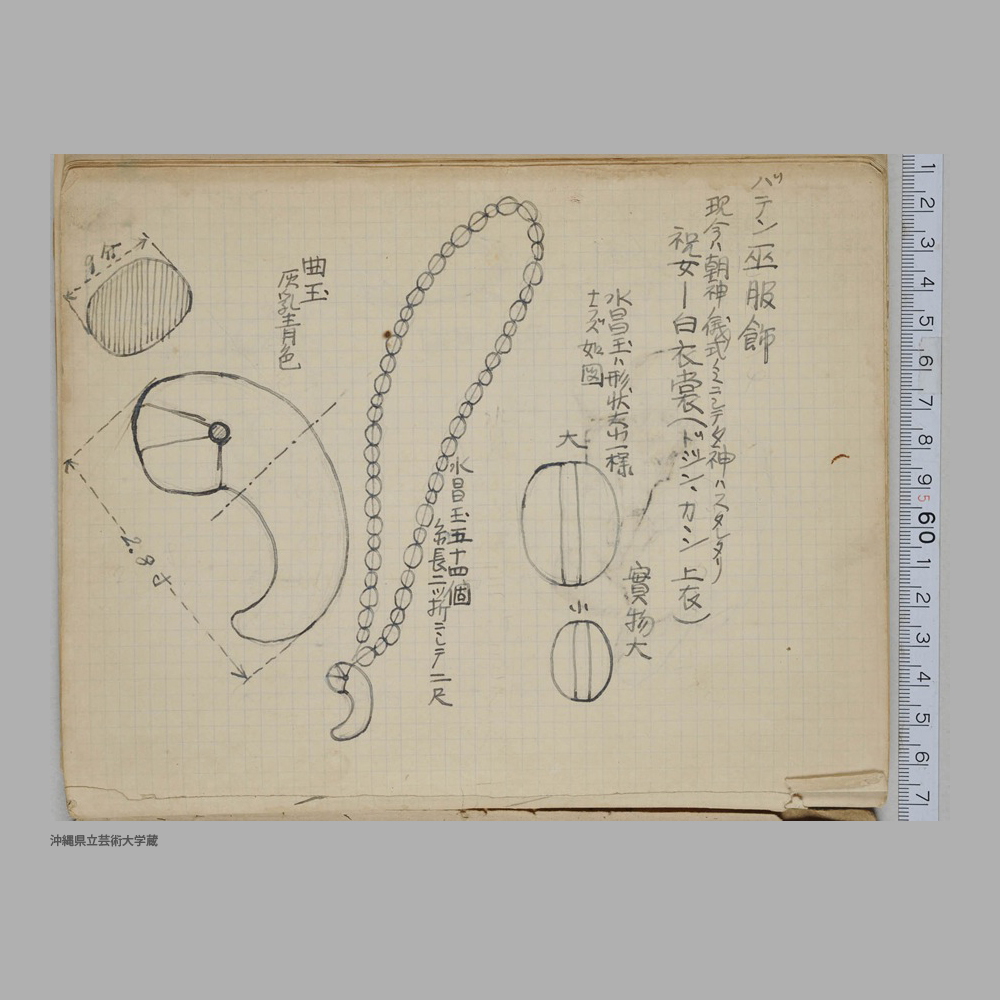 バテン巫服飾
現今ハ朝神儀式ノミニシテ夕神ハスタレタリ
祝女ー白衣裳(ドジン、カシン 上衣)
水昌玉ハ形状大小一様
ナラズ如図
大
實物大
小
水昌玉五十四個
糸長二ッ折ニシテ二尺
曲玉
灰乳青色
9分
2.8寸
1 2 3 4 5 6 7 8 9 60 1 2 3 4 5 6 7
沖縄県立芸術大学蔵